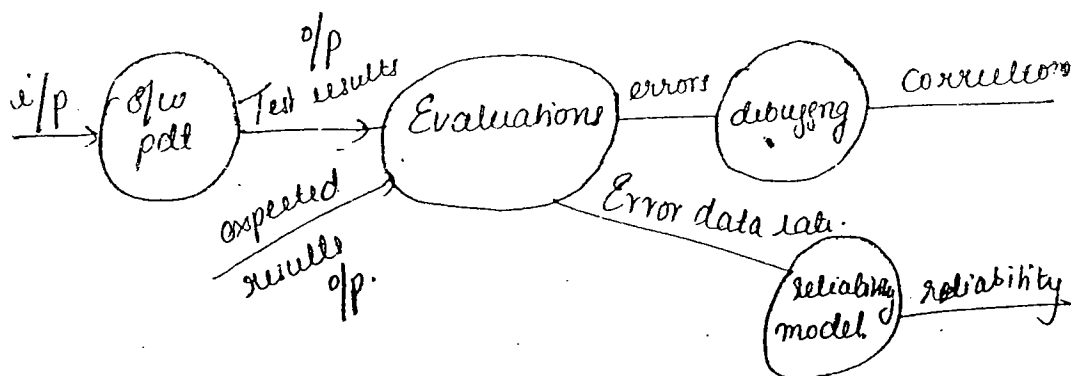 i/p
s/w
pdt
o/p
Test results
expected
results
o/p.
Evaluations
errors
debugging
corrections
Error data rate.
reliability
model.
reliability